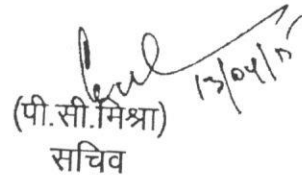 13/04/15
(पी.सी.मिश्रा)
सचिव